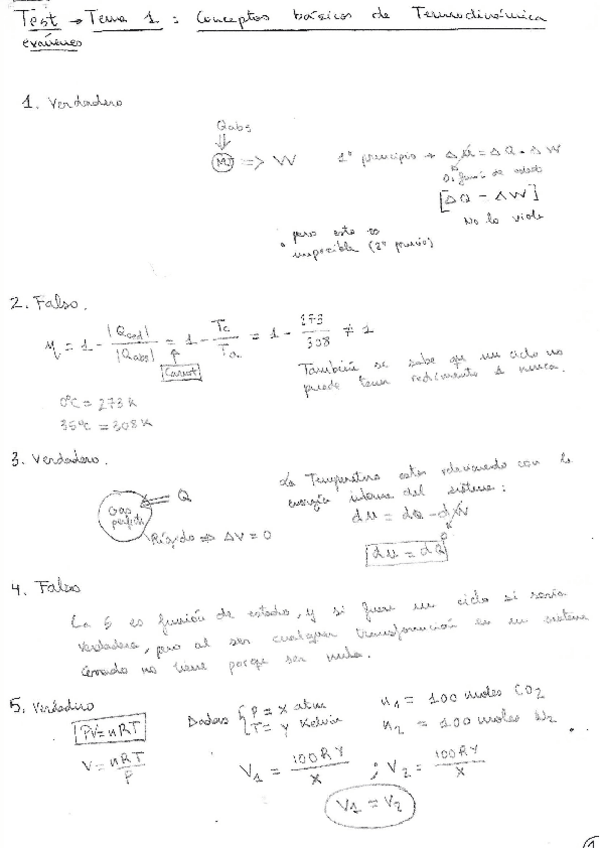 Test → Tema 1 : Conceptos básicos de Termodinámica
exámenes
1. Verdadero
Qabs
MT => W
1º principio → ΔU = ΔQ - ΔW
[ΔQ - ΔW]
No lo viola
• pero esto es
imposible (2º principio)
2. Falso.
η = 1 - |Qced| / |Qabs| = 1 - Tc / Ta = 1 - 273 / 308 ≠ 1
Carnot
También se sabe que un ciclo no
puede tener rendimiento 1 nunca.
0ºC = 273 K
35ºC = 308 K
3. Verdadero.
Gas perfecto
Q
Rígido => ΔV = 0
La Temperatura está relacionada con la
energía interna del sistema:
dU = dQ - dW
0
dU = dQ
4. Falso
La S es función de estado, y si fuera un ciclo sí sería
verdadero, pero al ser cualquier transformación en un sistema
cerrado no tiene porque ser nula.
5. Verdadero
PV = nRT
Dados { P = X atm
T = Y Kelvin
n1 = 100 moles CO2
n2 = 100 moles N2
V = nRT / P
V1 = 100RY / X ; V2 = 100RY / X
V1 = V2
1